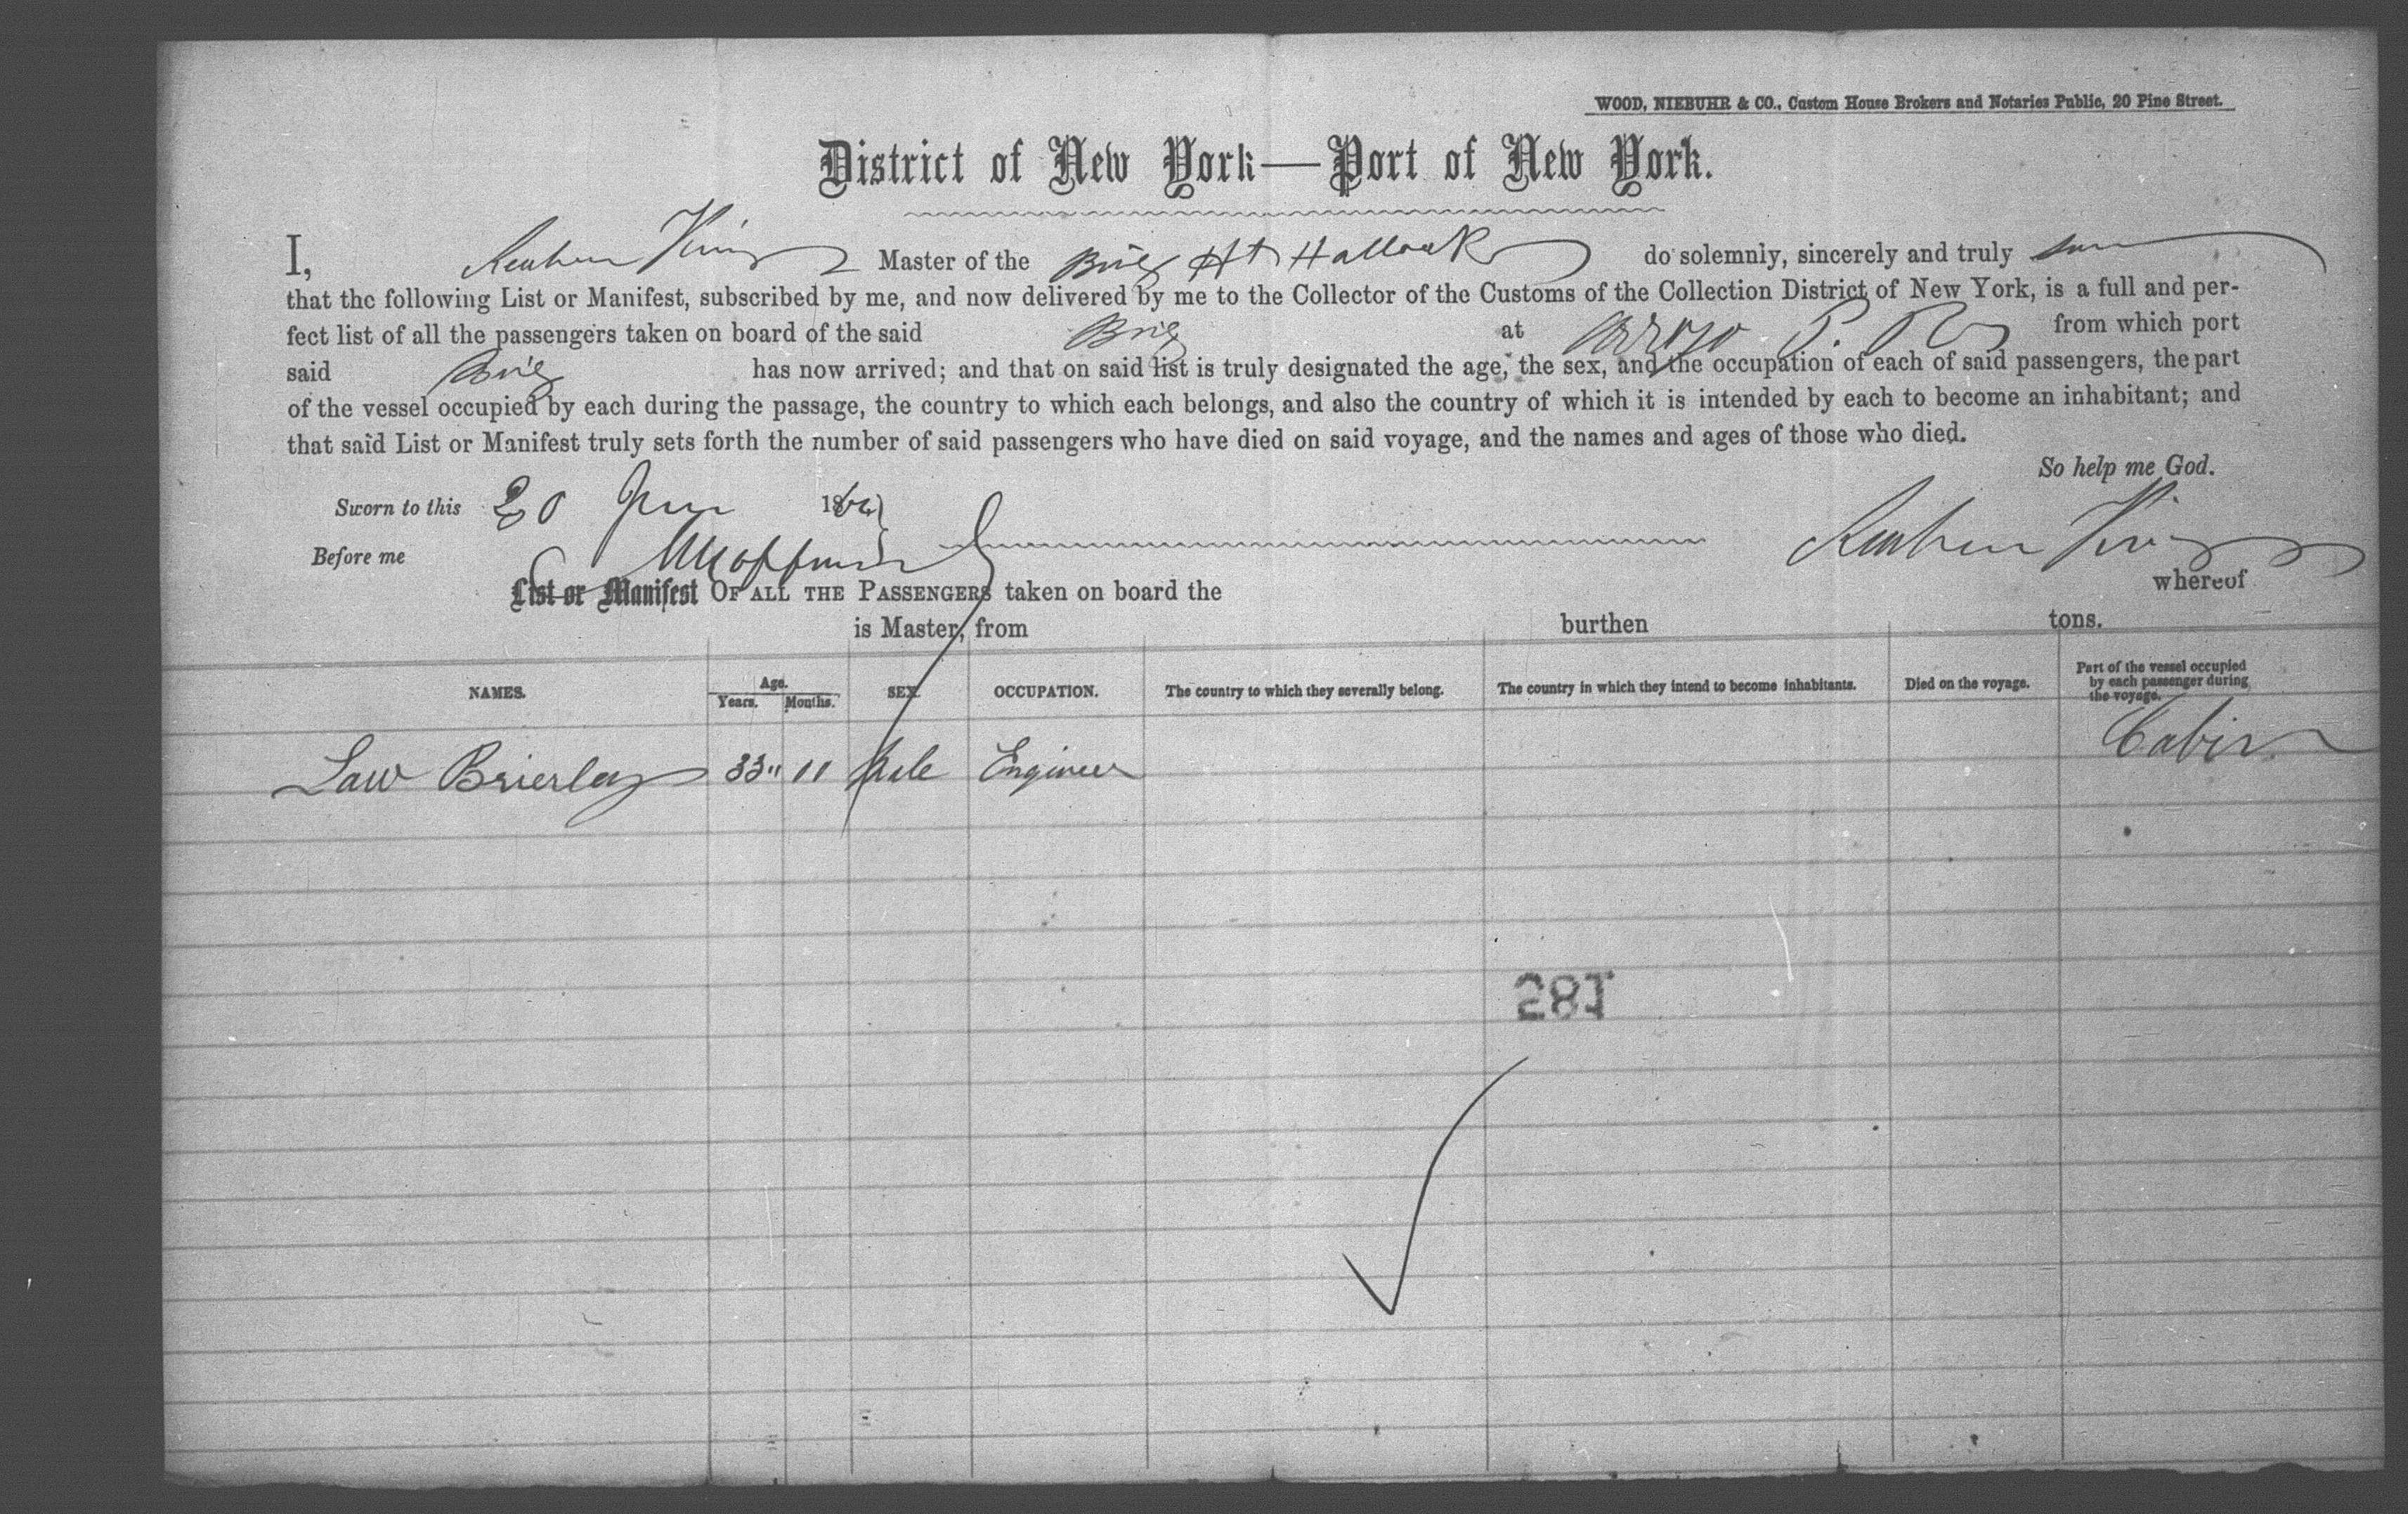 WOOD, NIEBUHR & CO., Custom House Brokers and Notaries Public, 20 Pine Street.
District of New York—Port of New York.
I, Reuben King Master of the Brig Hallock do solemnly, sincerely and truly
that the following List or Manifest, subscribed by me, and now delivered by me to the Collector of the Customs of the Collection District of New York, is a full and per-
fect list of all the passengers taken on board of the said Brig at Arroyo P. R from which port
said Brig has now arrived; and that on said list is truly designated the age, the sex, and the occupation of each of said passengers, the part
of the vessel occupied by each during the passage, the country to which each belongs, and also the country of which it is intended by each to become an inhabitant; and
that said List or Manifest truly sets forth the number of said passengers who have died on said voyage, and the names and ages of those who died.
So help me God.
Sworn to this 20 186
Before me Reuben King
List or Manifest OF ALL THE PASSENGERS taken on board the whereof
is Master, from burthen tons.
NAMES. Age. Years. Months. SEX. OCCUPATION. The country to which they severally belong. The country in which they intend to become inhabitants. Died on the voyage. Part of the vessel occupied by each passenger during the voyage.
Law Brierley 33 " 11 Male Engineer Cabin
281